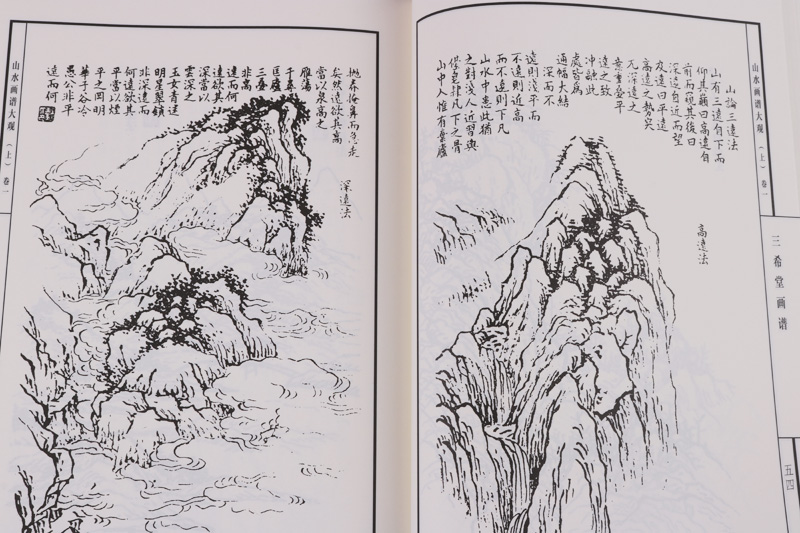 山水画谱大观（上）卷一
三希堂画谱
五四
山論三遠法
山有三遠自下而
仰其巔曰高遠自
前而窺其後曰
深遠自近而望
及遠曰平遠
高遠之勢突
兀深遠之
意重疊平
遠之致
沖融此
處皆爲
通幅大結
深而不
遠則淺平而
不遠則近高
而不遠則下凡
山水中患此猶
之對淺人近習輿
皂隸凡下之骨
山中人惟有棄廬
高遠法
抛家掩鼻而急走
矣然遠欲其高
當以泉高之
雁蕩
千尋
匡廬
三疊
非高
遠而何
遠欲其
深當以
雲深之
玉女青逵
明星翠鎖
非深遠而
何遠欲其
平當以煙
平之岡明
華子谷冷
愚公非平
遠而何
深遠法
山水画谱大观（上）卷一